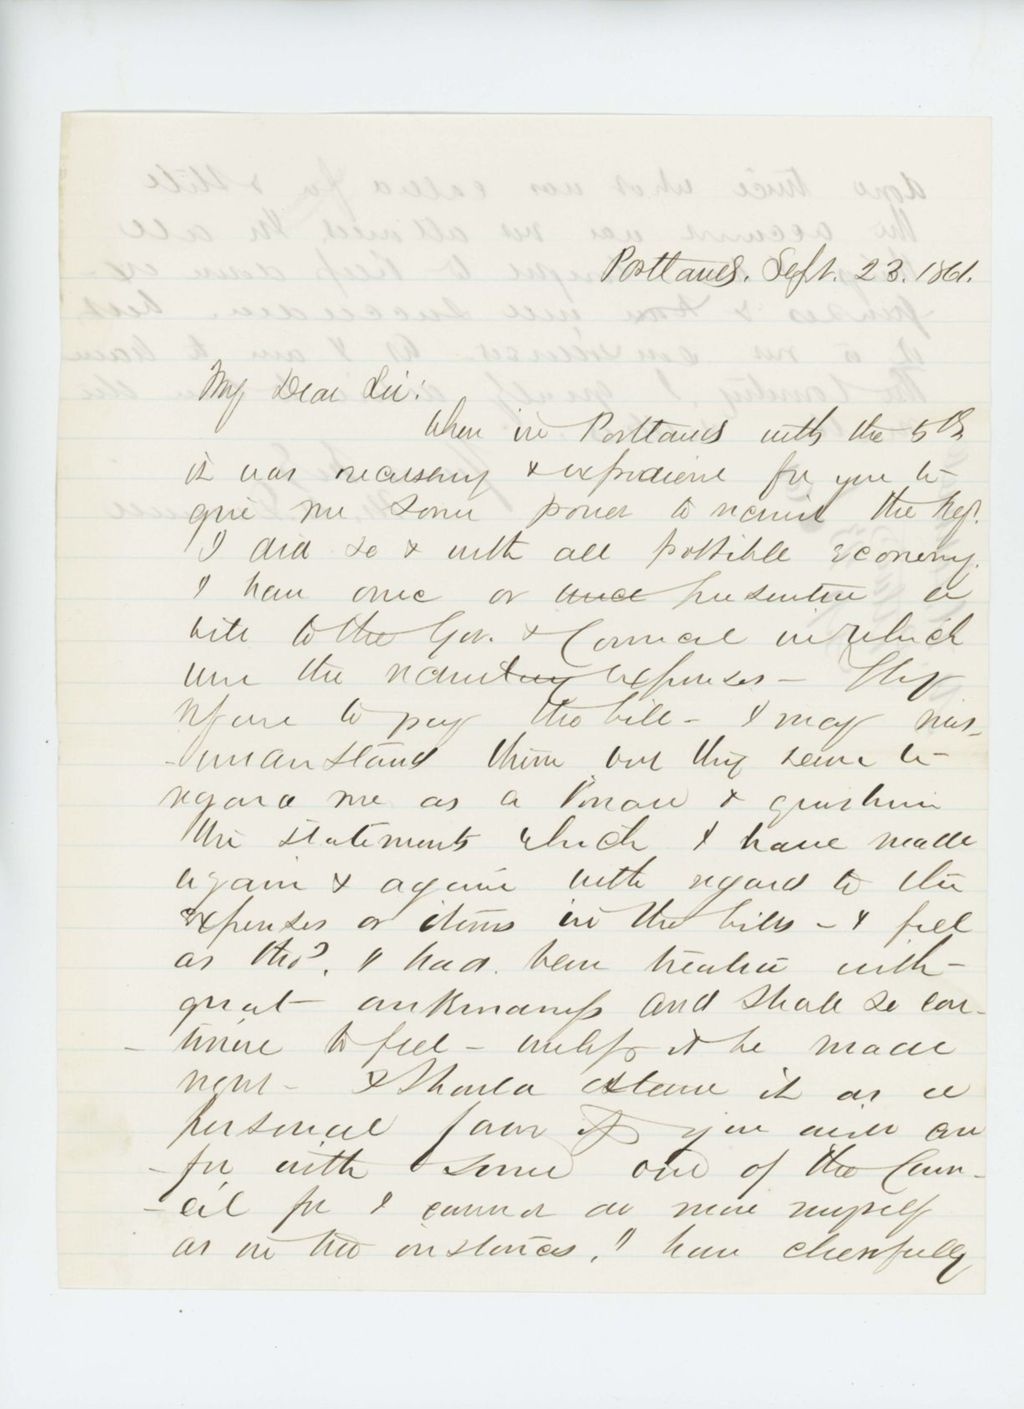 Portland. Sept. 23. 1861.
My Dear Sir:
When in Portland with the 5th
it was necessary & expedient for you to
give me some power to recruit the Regt.
I did so & with all possible economy.
I have once or twice presented a
bill to the Gov. & Council in which
were the recruiting expenses — They
refuse to pay the bill — I may mis-
-understand them but they seem to
regard me as a Private & question
the statements which I have made
again & again with regard to the
expenses or items in the bills — I feel
as tho'. I had been treated with
great unkindness and shall so con-
-tinue to feel — unless it be made
right — I should esteem it as a
personal favor if you will con-
-fer with some one of the Coun-
-cil for I cannot do more myself
as in two instances. I have cheerfully